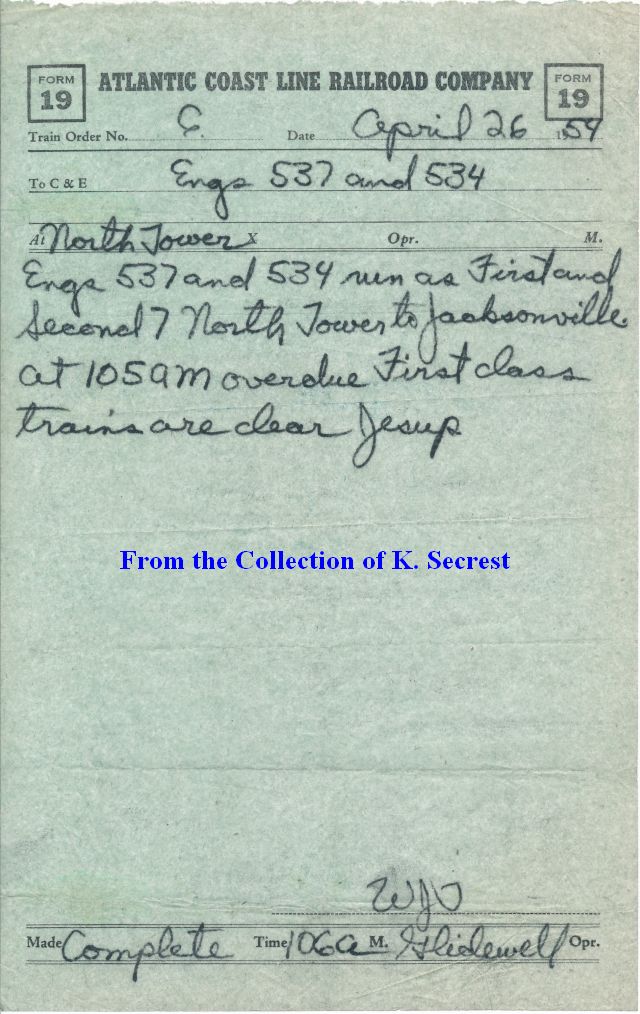 FORM 19 ATLANTIC COAST LINE RAILROAD COMPANY FORM 19
Train Order No. E. Date April 26 1954
To C & E Engs 537 and 534
At North Tower X Opr. M.
Engs 537 and 534 run as First and
Second 7 North Tower to Jacksonville
at 105 am overdue First class
trains are clear Jesup
From the Collection of K. Secrest
WJO
Made Complete Time 106a M. Glidewell Opr.